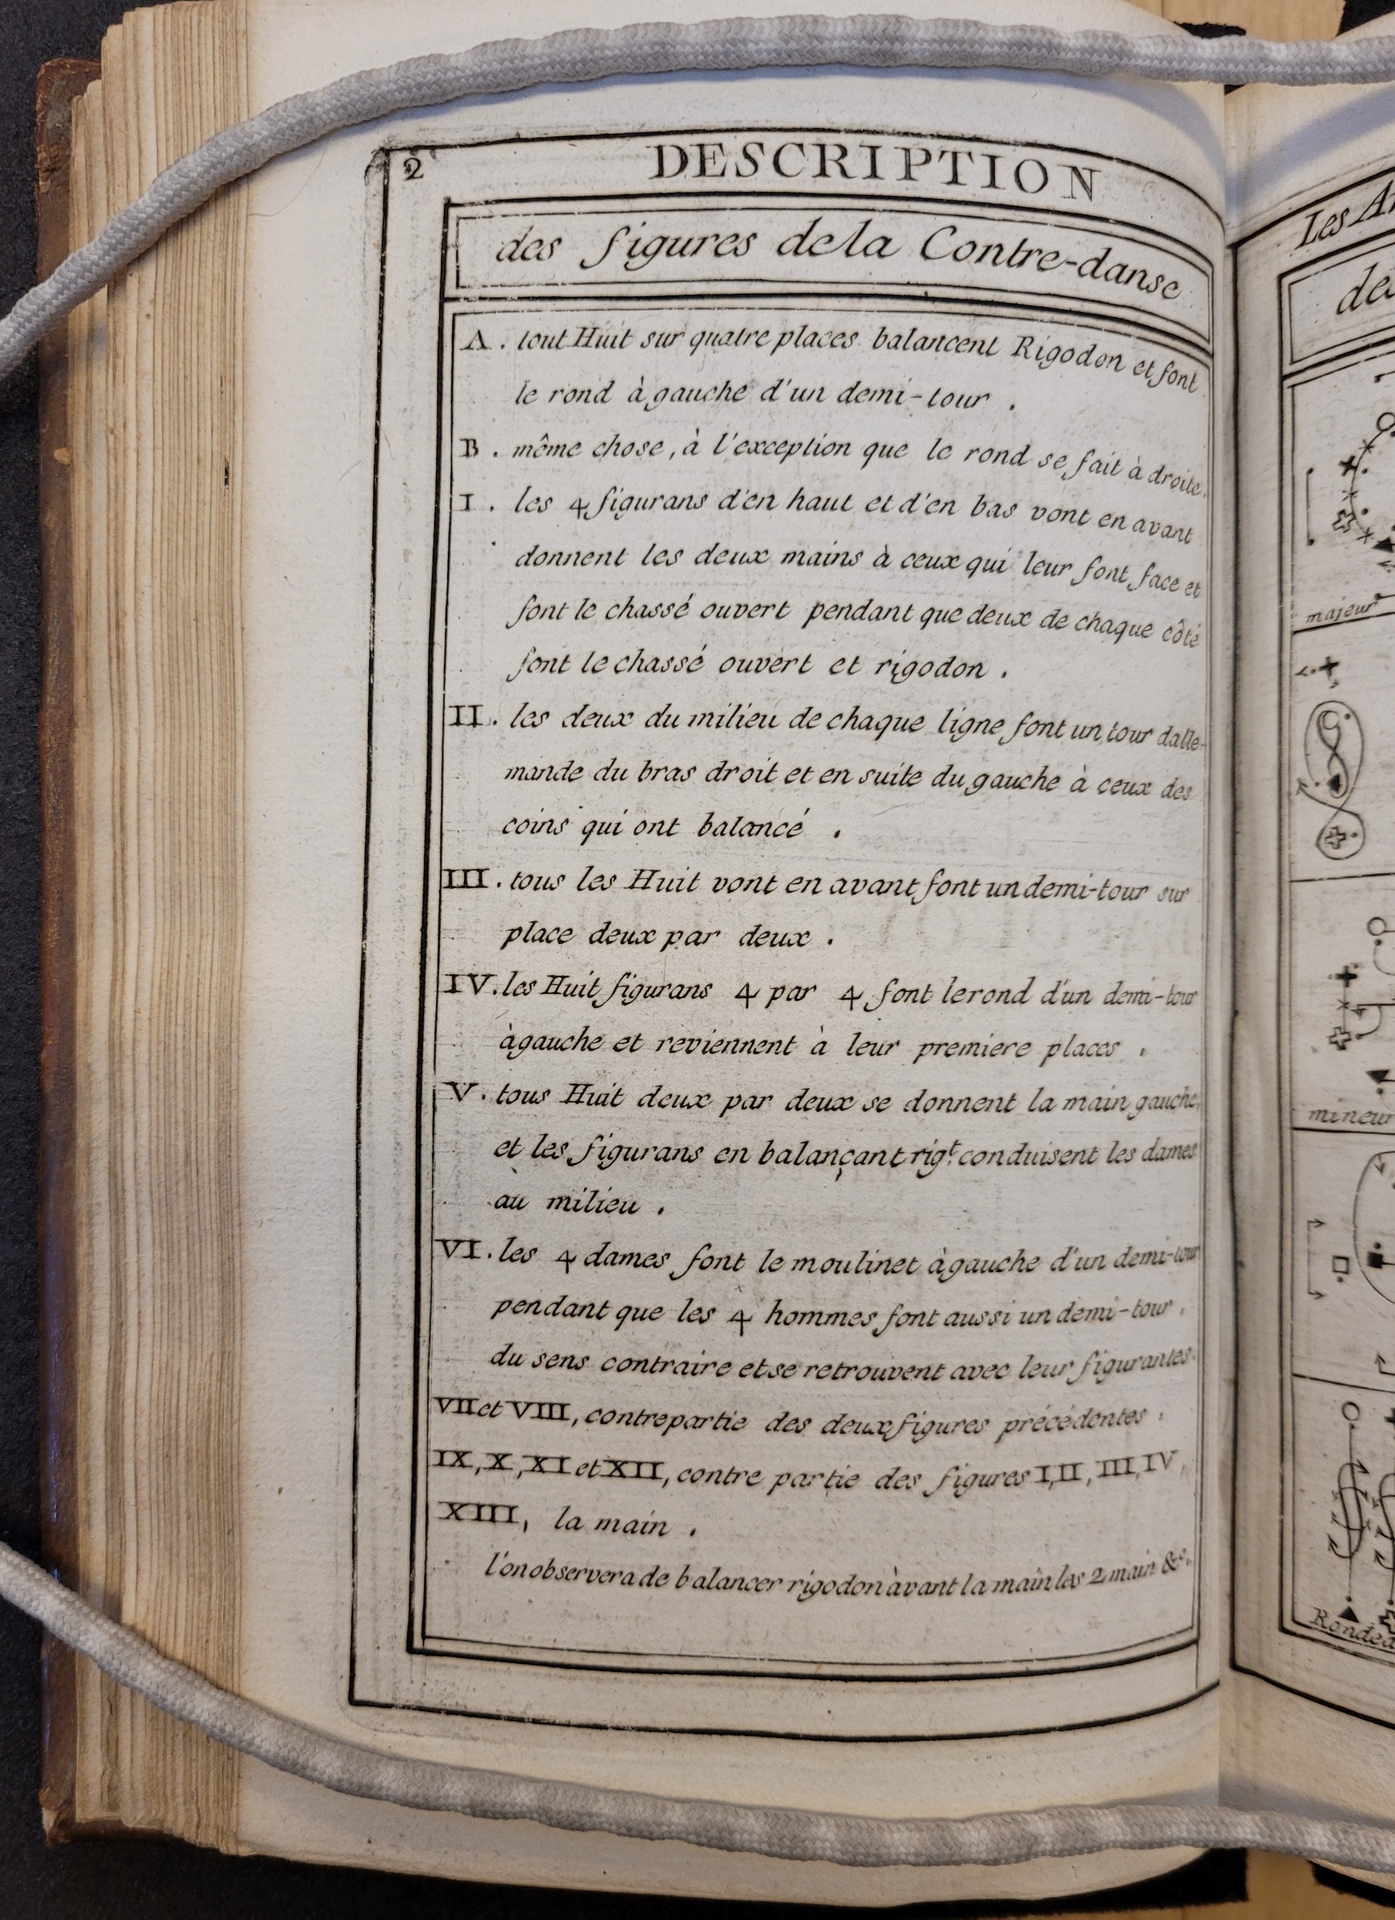 2
DESCRIPTION
des figures de la Contre-danse
A. tout Huit sur quatre places balancent Rigodon et font
le rond à gauche d'un demi-tour.
B. même chose, à l'exception que le rond se fait à droite.
I. les 4 figurans d'en haut et d'en bas vont en avant
donnent les deux mains à ceux qui leur font face et
font le chassé ouvert pendant que deux de chaque côté
font le chassé ouvert et rigodon.
II. les deux du milieu de chaque ligne font un tour dalle-
mande du bras droit et en suite du gauche à ceux des
coins qui ont balancé.
III. tous les Huit vont en avant font un demi-tour sur
place deux par deux.
IV. les Huit figurans 4 par 4 font le rond d'un demi-tour
à gauche et reviennent à leur premiere places.
V. tous Huit deux par deux se donnent la main gauche,
et les figurans en balançant rigt. conduisent les dames
au milieu.
VI. les 4 dames font le moulinet à gauche d'un demi-tour
pendant que les 4 hommes font aussi un demi-tour,
du sens contraire et se retrouvent avec leur figurantes.
VII et VIII, contrepartie des deux figures précédentes.
IX, X, XI et XII, contre partie des figures I, II, III, IV,
XIII, la main.
l'on observera de balancer rigodon àvant la main les 2 main &c.
Les
de
majeur
mineur